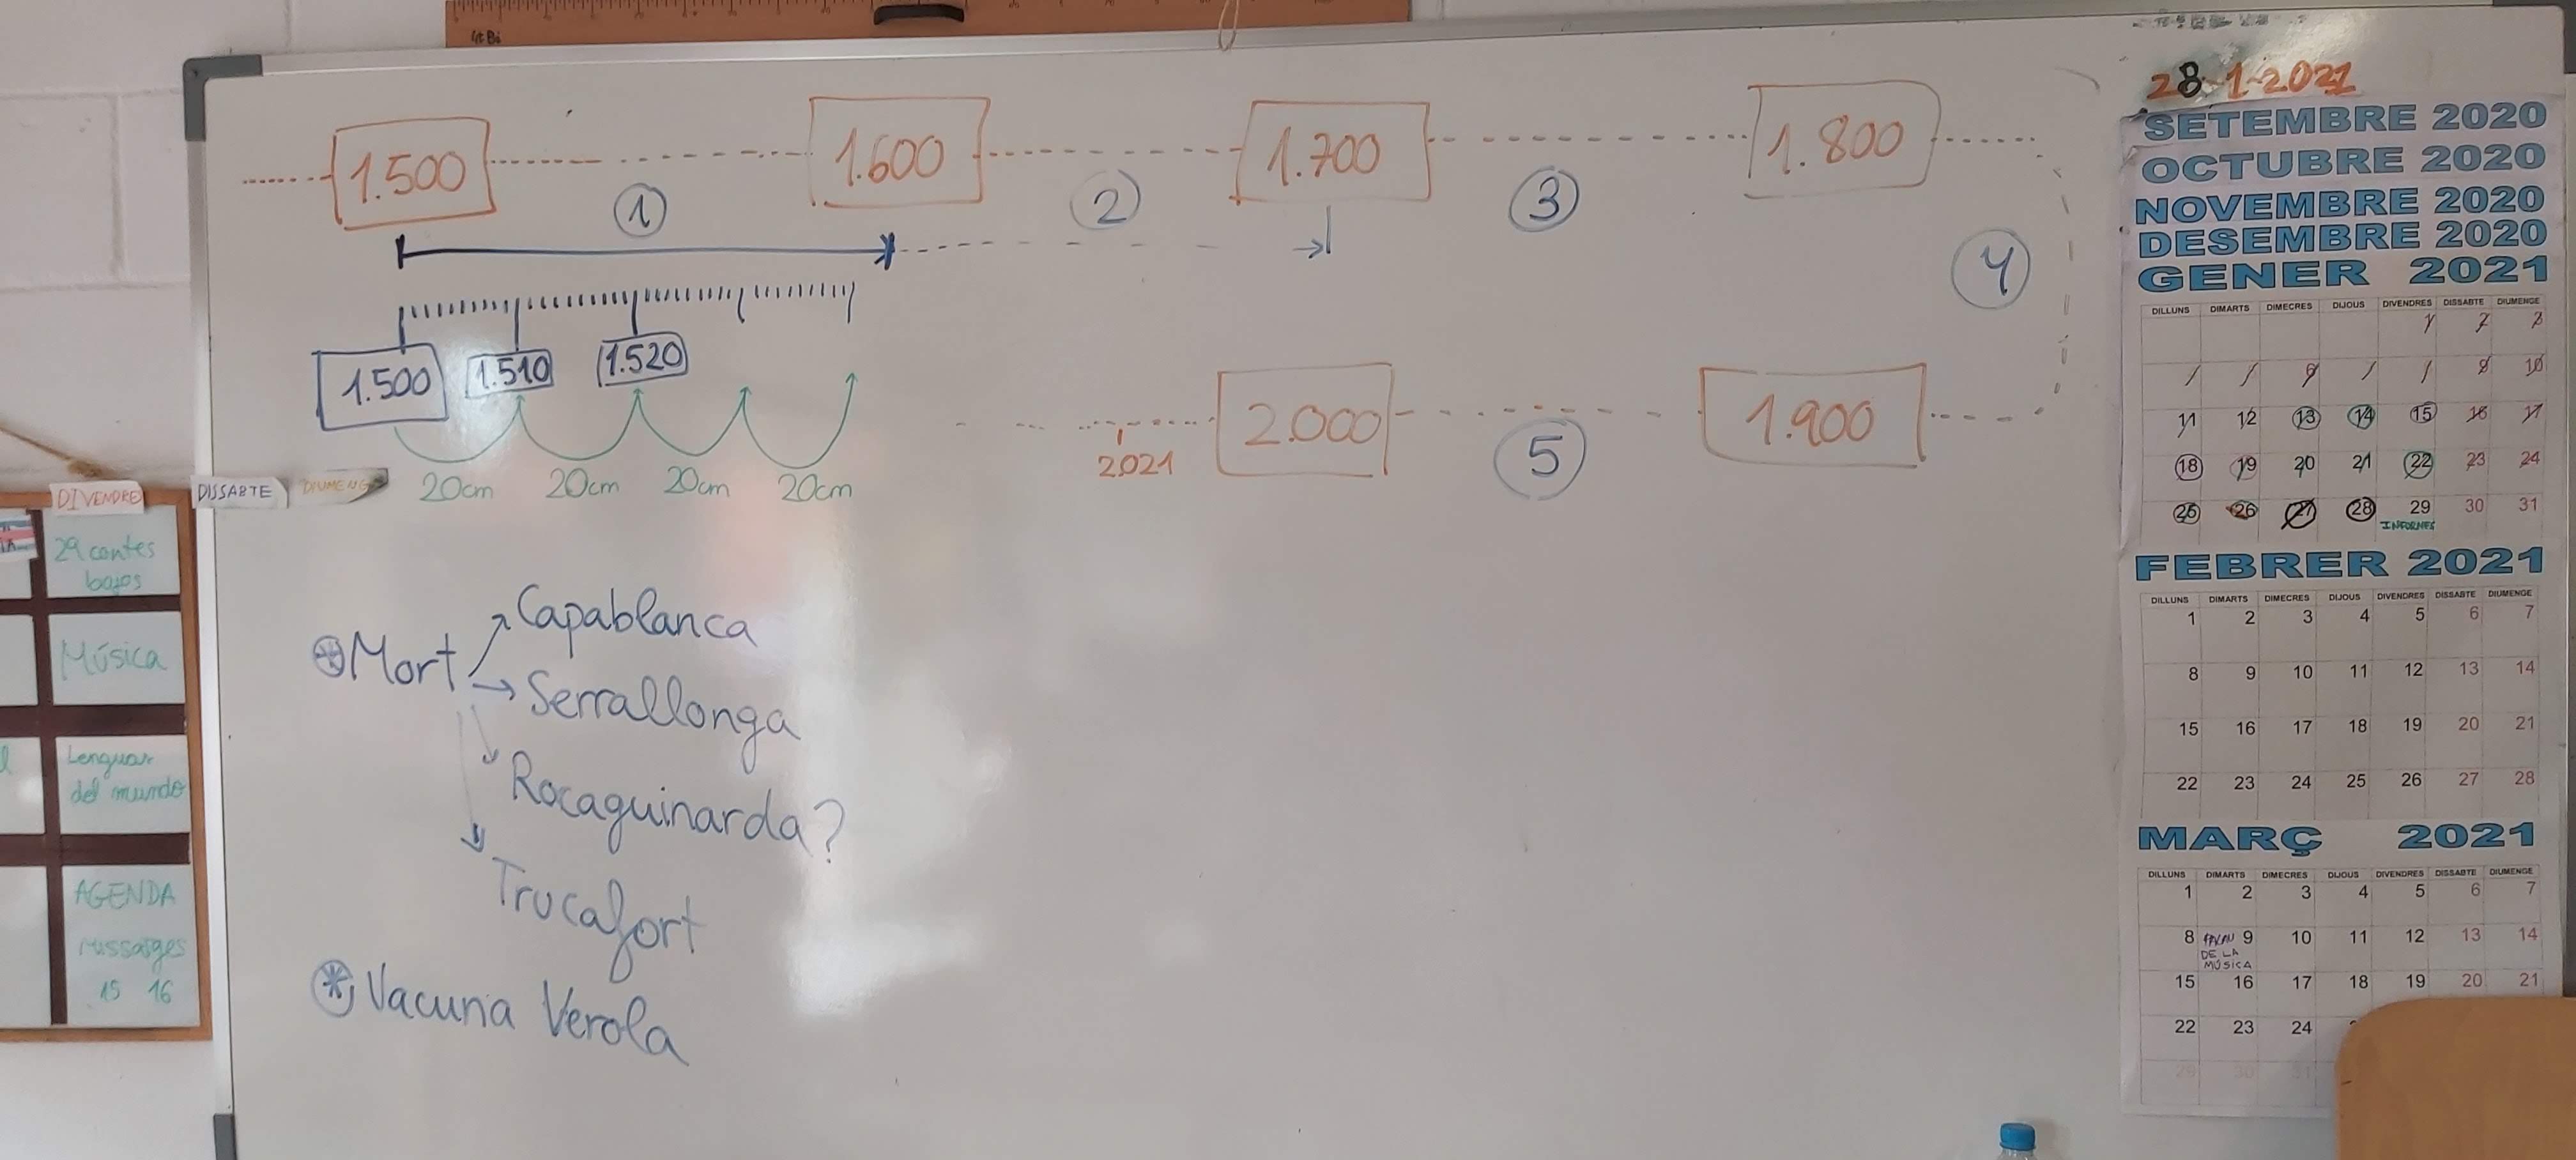 4t Bi
1.500
1.600
1.700
1.800
1
2
3
4
1.500
1.510
1.520
20cm
20cm
20cm
20cm
2021
2.000
5
1.900
Mort
Capablanca
Serrallonga
Rocaguinarda?
Trucafort
Vacuna Verola
DIVENDRE
DISSABTE
DIUMENG
29 contes
bojos
Música
Lenguas
del mundo
AGENDA
Missatges
15 16
28-1-2021
SETEMBRE 2020
OCTUBRE 2020
NOVEMBRE 2020
DESEMBRE 2020
GENER 2021
DILLUNS DIMARTS DIMECRES DIJOUS DIVENDRES DISSABTE DIUMENGE
1 2 3
6 9 10
11 12 13 14 15 16 17
18 19 20 21 22 23 24
25 26 27 28 29 30 31
INFORMES
FEBRER 2021
DILLUNS DIMARTS DIMECRES DIJOUS DIVENDRES DISSABTE DIUMENGE
1 2 3 4 5 6 7
8 9 10 11 12 13 14
15 16 17 18 19 20 21
22 23 24 25 26 27 28
MARÇ 2021
DILLUNS DIMARTS DIMECRES DIJOUS DIVENDRES DISSABTE DIUMENGE
1 2 3 4 5 6 7
8 9 10 11 12 13 14
PALAU
DE LA
MÚSICA
15 16 17 18 19 20 21
22 23 24
29 30 31